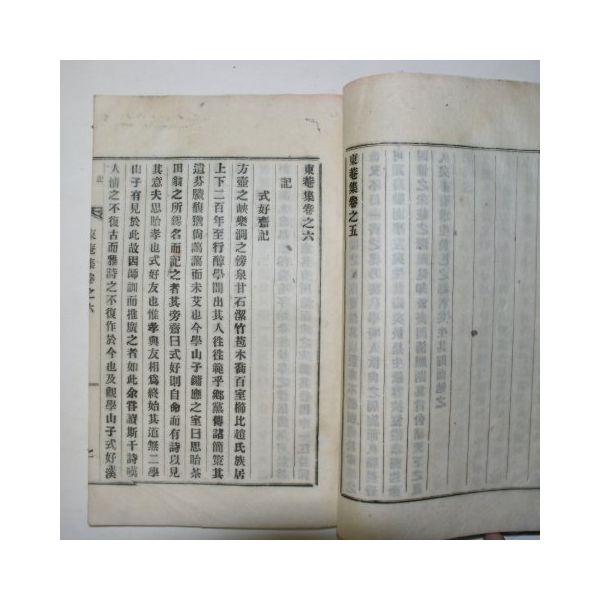 東菴集卷之五
東菴集卷之六
記
式好齋記
方壺之峽樂澗之傍泉甘石潔竹苞木喬百室櫛比趙氏族居
上下二百年至行醇學間出其人往往範乎鄉黨傳諸簡策其
遺芬賸馥豫尙藹藹而未艾也今學山子鏞應之室曰思貽茶
田翁之所親名而記之者其旁齋曰式好則自命而有詩以見
其意夫思貽孝也式好友也惟孝與友相爲終始其道無二學
山子有見於此故因師訓而推廣之者如此余嘗讀斯干詩嘆
人情之不復古而雅詩之不復作於今也及觀學山子式好漢
東菴集卷之六